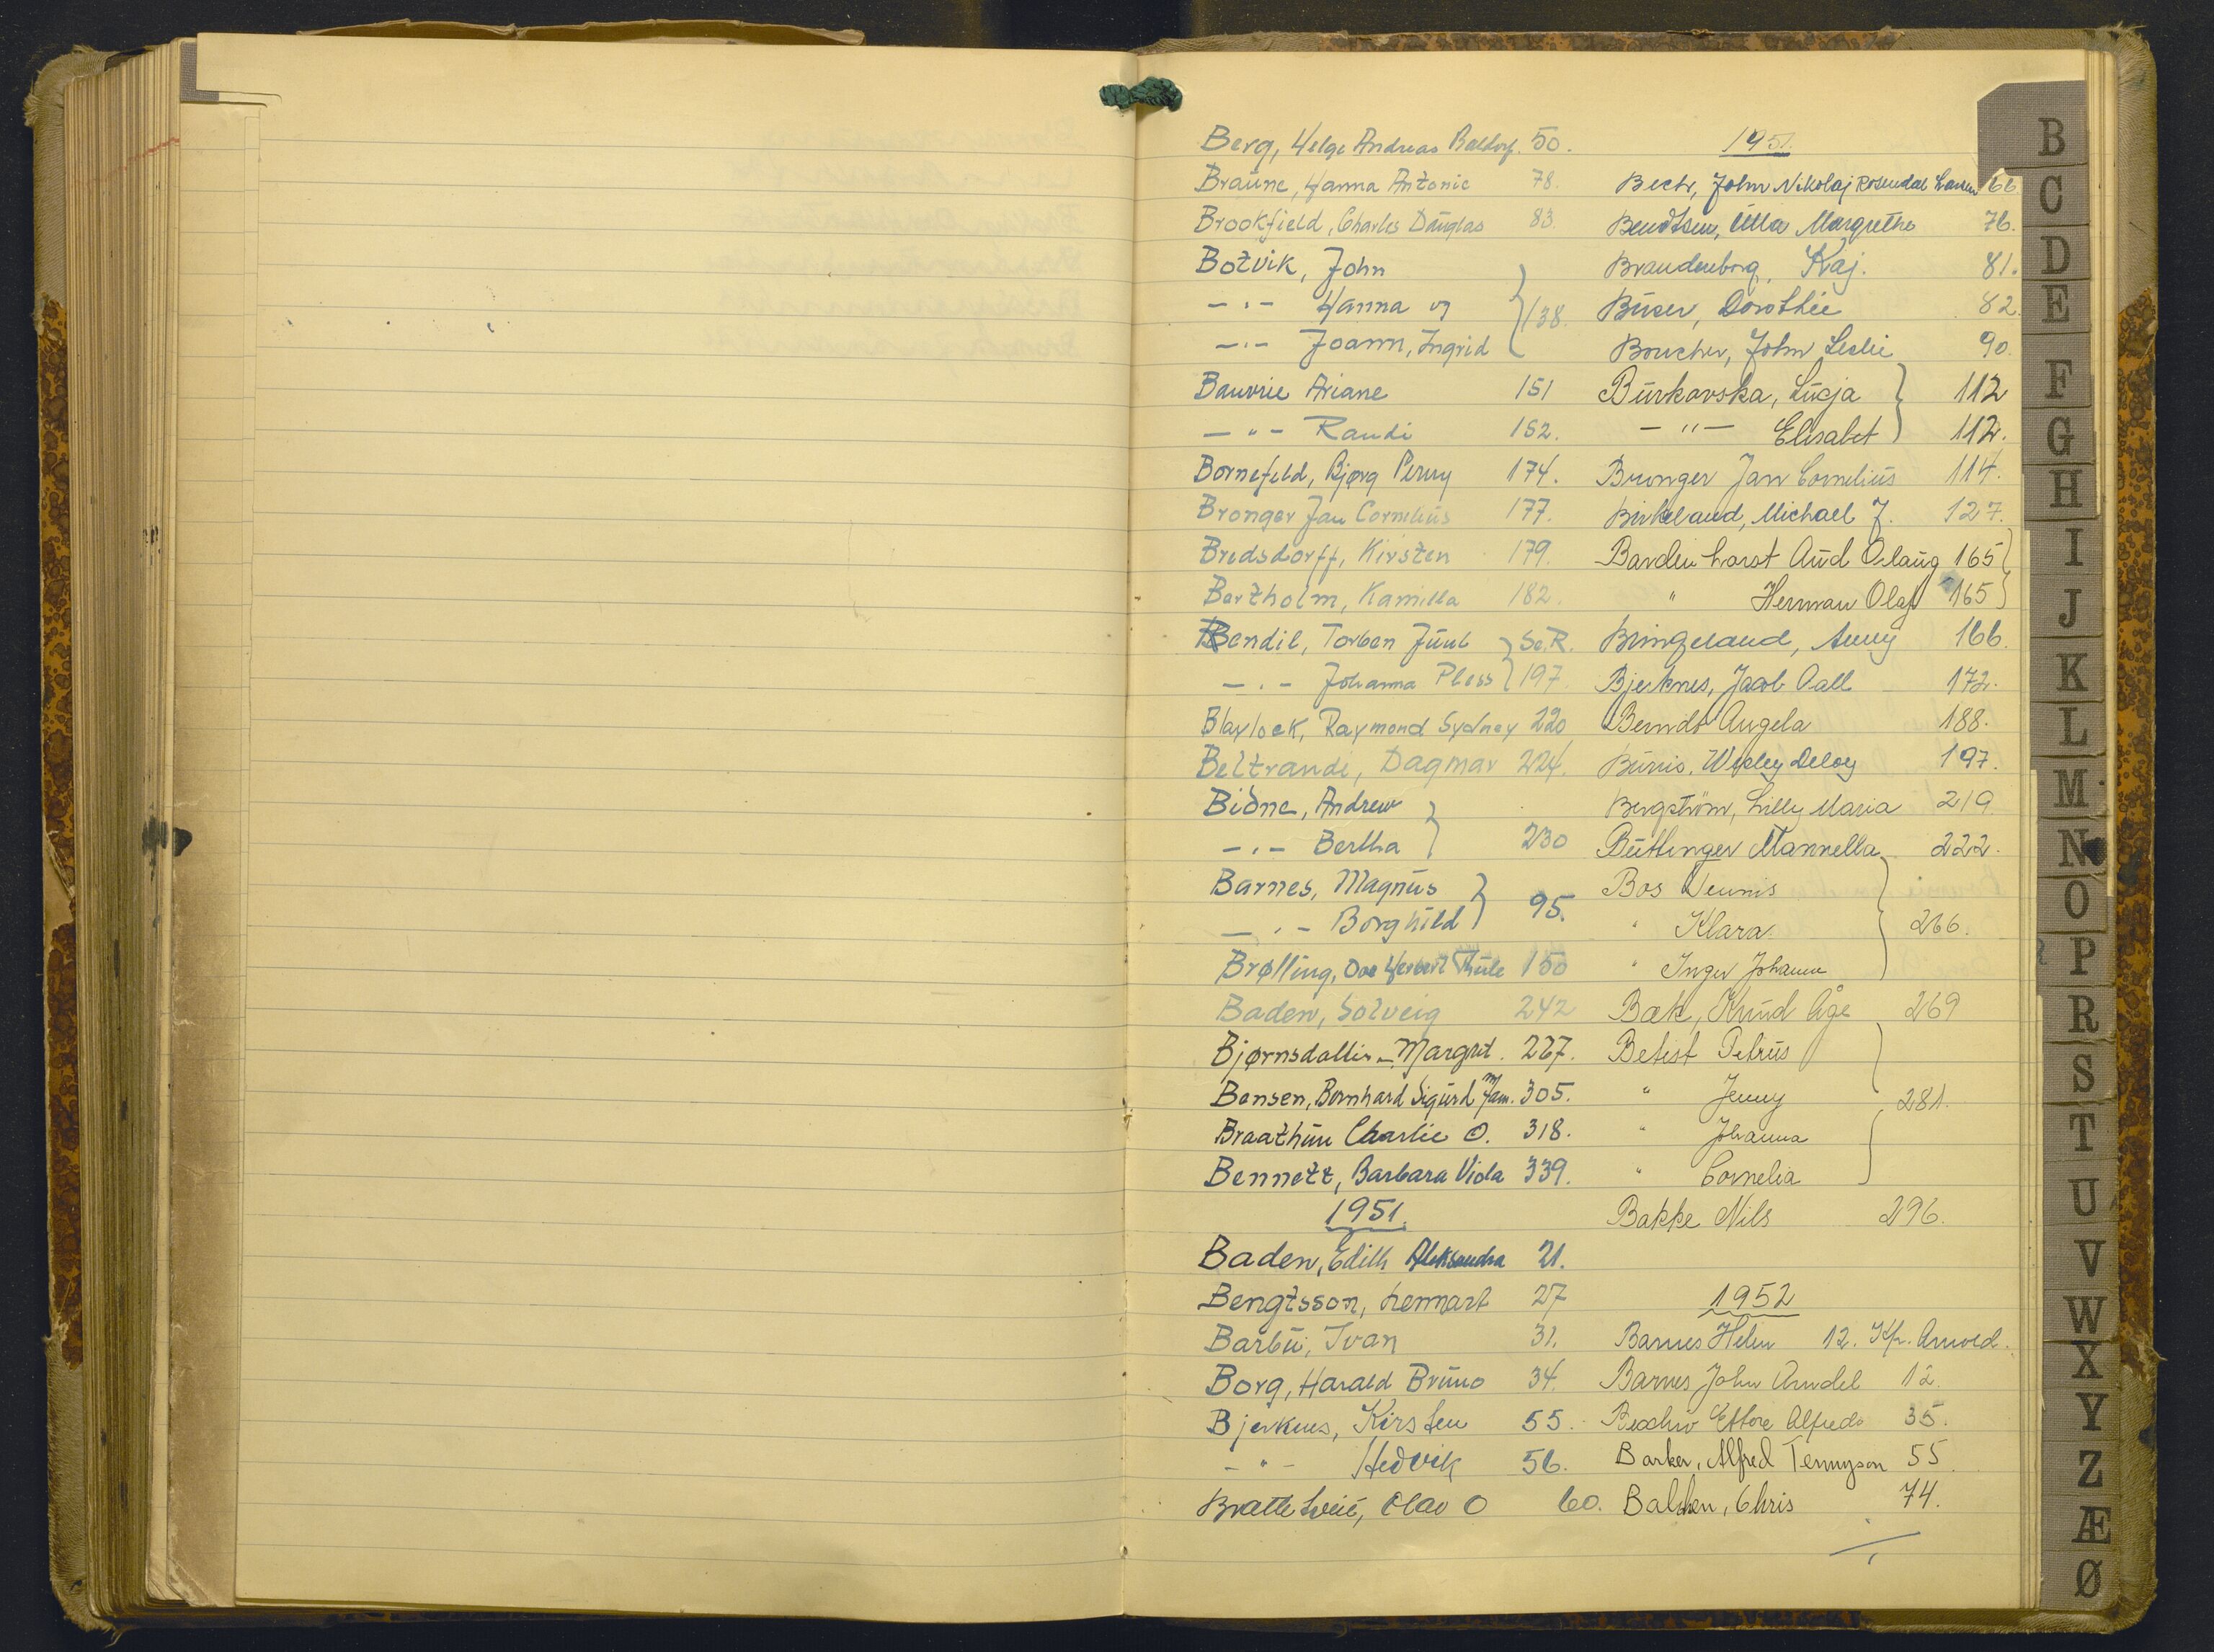 Berg, Helge Andreas 50.
Braüne, Hanna Antonie 78.
Brookfield, Charles Daüglas 83.
Botvik, John
-"- Hanna og 138.
-"- Joann, Ingrid
Bauvrie Ariane 151
-"- Randi 152.
Bornefeld, Bjørg Perny 174.
Bronger Jan Cornelius 177.
Bredsdorff, Kirsten 179.
Bertholm, Kamilla 182.
Bendil, Torben Jüül Se.R.
-"- Johanna Pless 197.
Blaylock, Raymond Sydney 220
Beltrandi, Dagmar 224.
Bidne, Andrew
-"- Bertha 230
Barnes, Magnüs
-"- Borghild 95.
Brølling, Herbert Thüle 150
Baden, Solveig 242
Bjørnsdatter Margret. 227.
Bensen, Bernhard Sigürd m/fam. 305.
Braathün Charlie O. 318.
Bennett, Barbara Viola 339.
1951.
Baden, Edith Aleksandra 21.
Bengtsson, Lennart 27
Barbü, Ivan 31.
Borg, Harald Brüno 34.
Bjerknes, Kirsten 55.
-"- Hedvik 56.
Bratteteveit, Olav O 60.
1951.
John Nikolaj Rosendal Larsen 66
Bendtsen, Ülla Margrethe 76.
Brandenborg, Kaj. 81.
Büser, Dorothee 82.
Boucher, John Leslie 90.
Bürkovska, Lücja 112
-"- Elisabet 112.
Bronger Jan Cornelius 114.
Birkeland, Michael J. 127.
Bardenhorst Aüd Oslaüg 165
" Herman Olaf 165
Bringeland, Anny 166.
Bjerknes, Jacob Aall 172.
Berndt Angela 188.
Wesley Deloy 197.
Bergström, Lilly Maria 219.
Büttinger Mannella 222.
Bos Teunis
" Klara 266.
" Inger Johanne
Bæk, Knüd Åge 269
Betist Petrüs
" Jenny 281.
" Johanna
" Cornelia
Bakke Nils 296.
1952
Barnes Helen 12. Kfr. Arnold.
Barnes John Arndel 12.
Ettore Alfredo 35.
Barker, Alfred Tennyson 55.
Balchen, Chris 74.
B
C
D
E
F
G
H
I
J
K
L
M
N
O
P
R
S
T
U
V
W
X
Y
Z
Æ
Ø